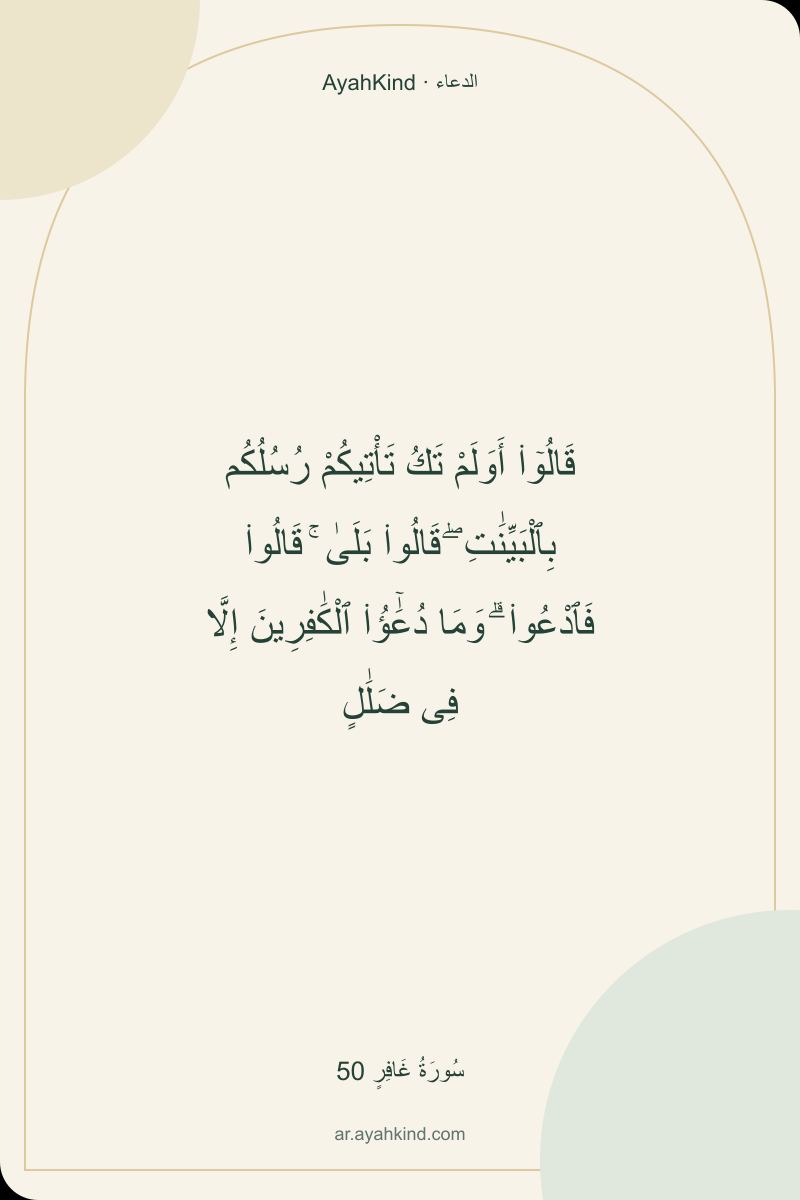 AyahKind · الدعاء
قَالُوٓا۟ أَوَلَمْ تَكُ تَأْتِيكُمْ رُسُلُكُم
بِٱلْبَيِّنَـٰتِ ۖ قَالُوا۟ بَلَىٰ ۚ قَالُوا۟
فَٱدْعُوا۟ ۗ وَمَا دُعَـٰٓؤُا۟ ٱلْكَـٰفِرِينَ إِلَّا
فِى ضَلَـٰلٍ
سُورَةُ غَافِرٍ 50
ar.ayahkind.com